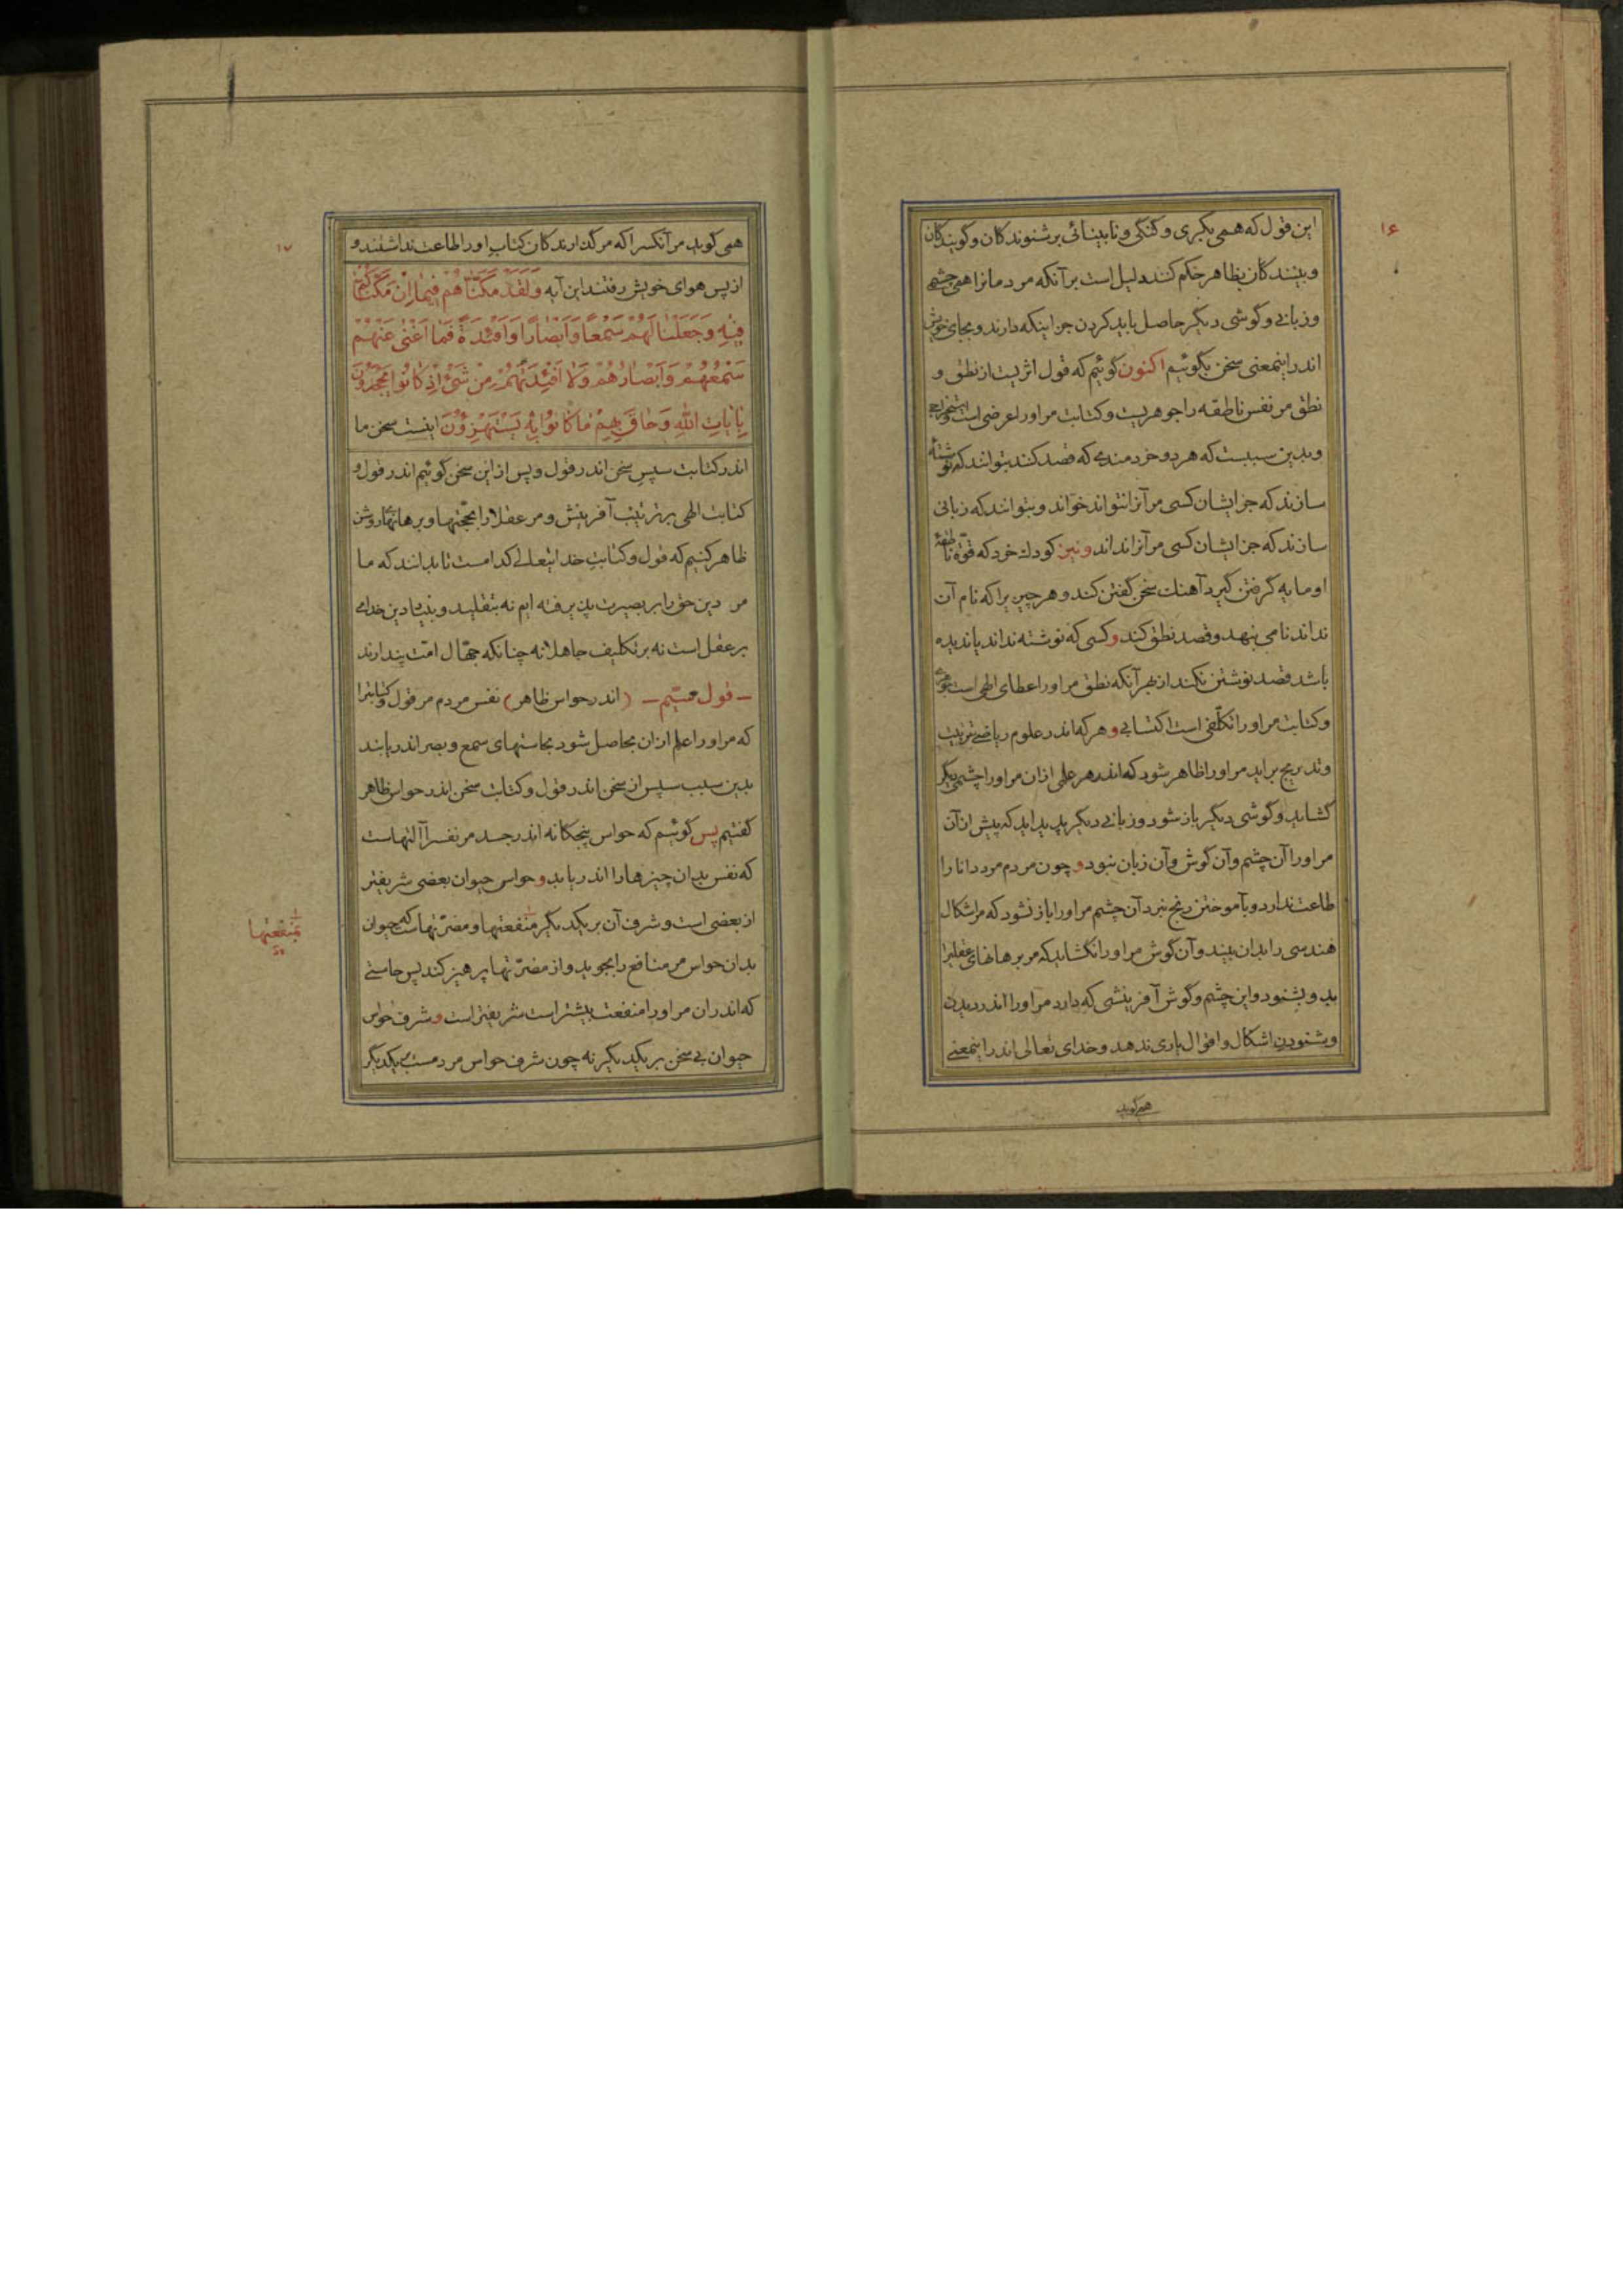 ۱۶
این قول که همی بکری و گنگی و نابینائی بر شنوندکان و گویندکان
و بینندکان بظاهر حکم کند دلیل است بر آنکه مردمانرا همی چشمی
و زبانی و گوشی دیگر حاصل باید کردن جز اینکه دارند و بجای خویش
اندر اینمعنی سخن بگوئیم اکنون گوئیم که قول اثریست از نطق و
نطق مر نفس ناطقه را جوهریست و کتابت مر اورا عرضی است استخراجی
و بدین سببست که هر دو خردمندی که قصد کنند بتوانند که نوشتهٔ
سازند که جز ایشان کسی مر آنرا نتواند خواند و بتوانند که زبانی
سازند که جز ایشان کسی مر آنرا نداند و نیز کودك خرد که قوّه ناطقهٔ
او مایه گرفتن گیرد آهنك سخن گفتن کند و هر چیزیرا که نام آن
نداند نامی بنهد و قصد نطق کند و کسی که نوشته نداند یا ندیده
باشد قصد نوشتن نکند از بهر آنکه نطق مر اورا عطای الهی است
و کتابت مر اورا تکلّفی است اکتسابی و هر که اندر علوم ریاضی بترتیب
و تدریج براید مر اورا ظاهر شود که اندر هر علمی ازان مر اورا چشمی دیگر
گشاید و گوشی دیگر باز شود و زبانی دیگر پدید اید که پیش ازآن
مر اورا آن چشم و آن گوش و آن زبان نبود و چون مردم مرد دانا را
طاعت ندارد و بآموختن رنج نبرد آن چشم مر اورا باز نشود که مر اشکال
هندسی را بدان بیند و آن گوش مر اورا نگشاید که مر برهانهای عقلیرا
بدو بشنود و این چشم و گوش آفرینشی که دارد مر اورا اندر دیدن
و بشنودن اشکال و اقوال یاری ندهد و خدای تعالی اندر اینمعنی
همی گوید
۱۷
همی گوید مر آنکسرا که مر گذارندکان کتاب اورا طاعت نداشتند و
از پس هوای خویش رفتند این آیه وَلَقَدْ مَكَّنَّاهُمْ فِيمَا إِنْ مَكَّنَّاكُمْ
فِيهِ وَجَعَلْنَا لَهُمْ سَمْعاً وَأَبْصَاراً وَأَفْئِدَةً فَمَا أَغْنَى عَنْهُمْ
سَمْعُهُمْ وَأَبْصَارُهُمْ وَلَا أَفْئِدَتُهُمْ مِنْ شَيْءٍ إِذْ كَانُوا يَجْحَدُونَ
بِآيَاتِ اللهِ وَحَاقَ بِهِمْ مَا كَانُوا بِهِ يَسْتَهْزِؤُنَ اینست سخن ما
اندر کتابت سپس سخن اندر قول و پس از این سخن گوئیم اندر قول و
کتابت الهی بر ترتیب آفرینش و مر عقلا را بحجّتها و برهانهای روشن
ظاهر کنیم که قول و کتابت خدایتعالی کدامست تا بدانند که ما
مر دین حق را بر بصیرت پذیرفته ایم نه بتقلید و بنیاد دین خدای
بر عقل است نه بر تکلیف جاهلانه چنانکه جهّال امّت پندارند
– قول سیّم – (اندر حواس ظاهر) نفس مردم مر قول و کتابترا
که مر اورا علم ازان بحاصل شود بحاستهای سمع و بصر اندر یابند
بدین سبب سپس از سخن اندر قول و کتاب سخن اندر حواس ظاهر
گفتیم پس گوئیم که حواس پنجکانه اندر جسد مر نفسرا آلتهاست
که نفس بدان چیزها را اندر یابد و حواس حیوان بعضی شریفتر
از بعضی است و شرف آن بر یکدیگر منفعتها و مضرّتهاست که حیوان
بدان حواس مر منافع را بجوید و از مضرّتها پرهیز کند پس حاستی
که اندران مر اورا منفعت بیشتر است شریفتر است و شرف حواس
حیوان بی سخن بر یکدیگر نه چون شرف حواس مردمست بر یکدیگر
بمنفعتها